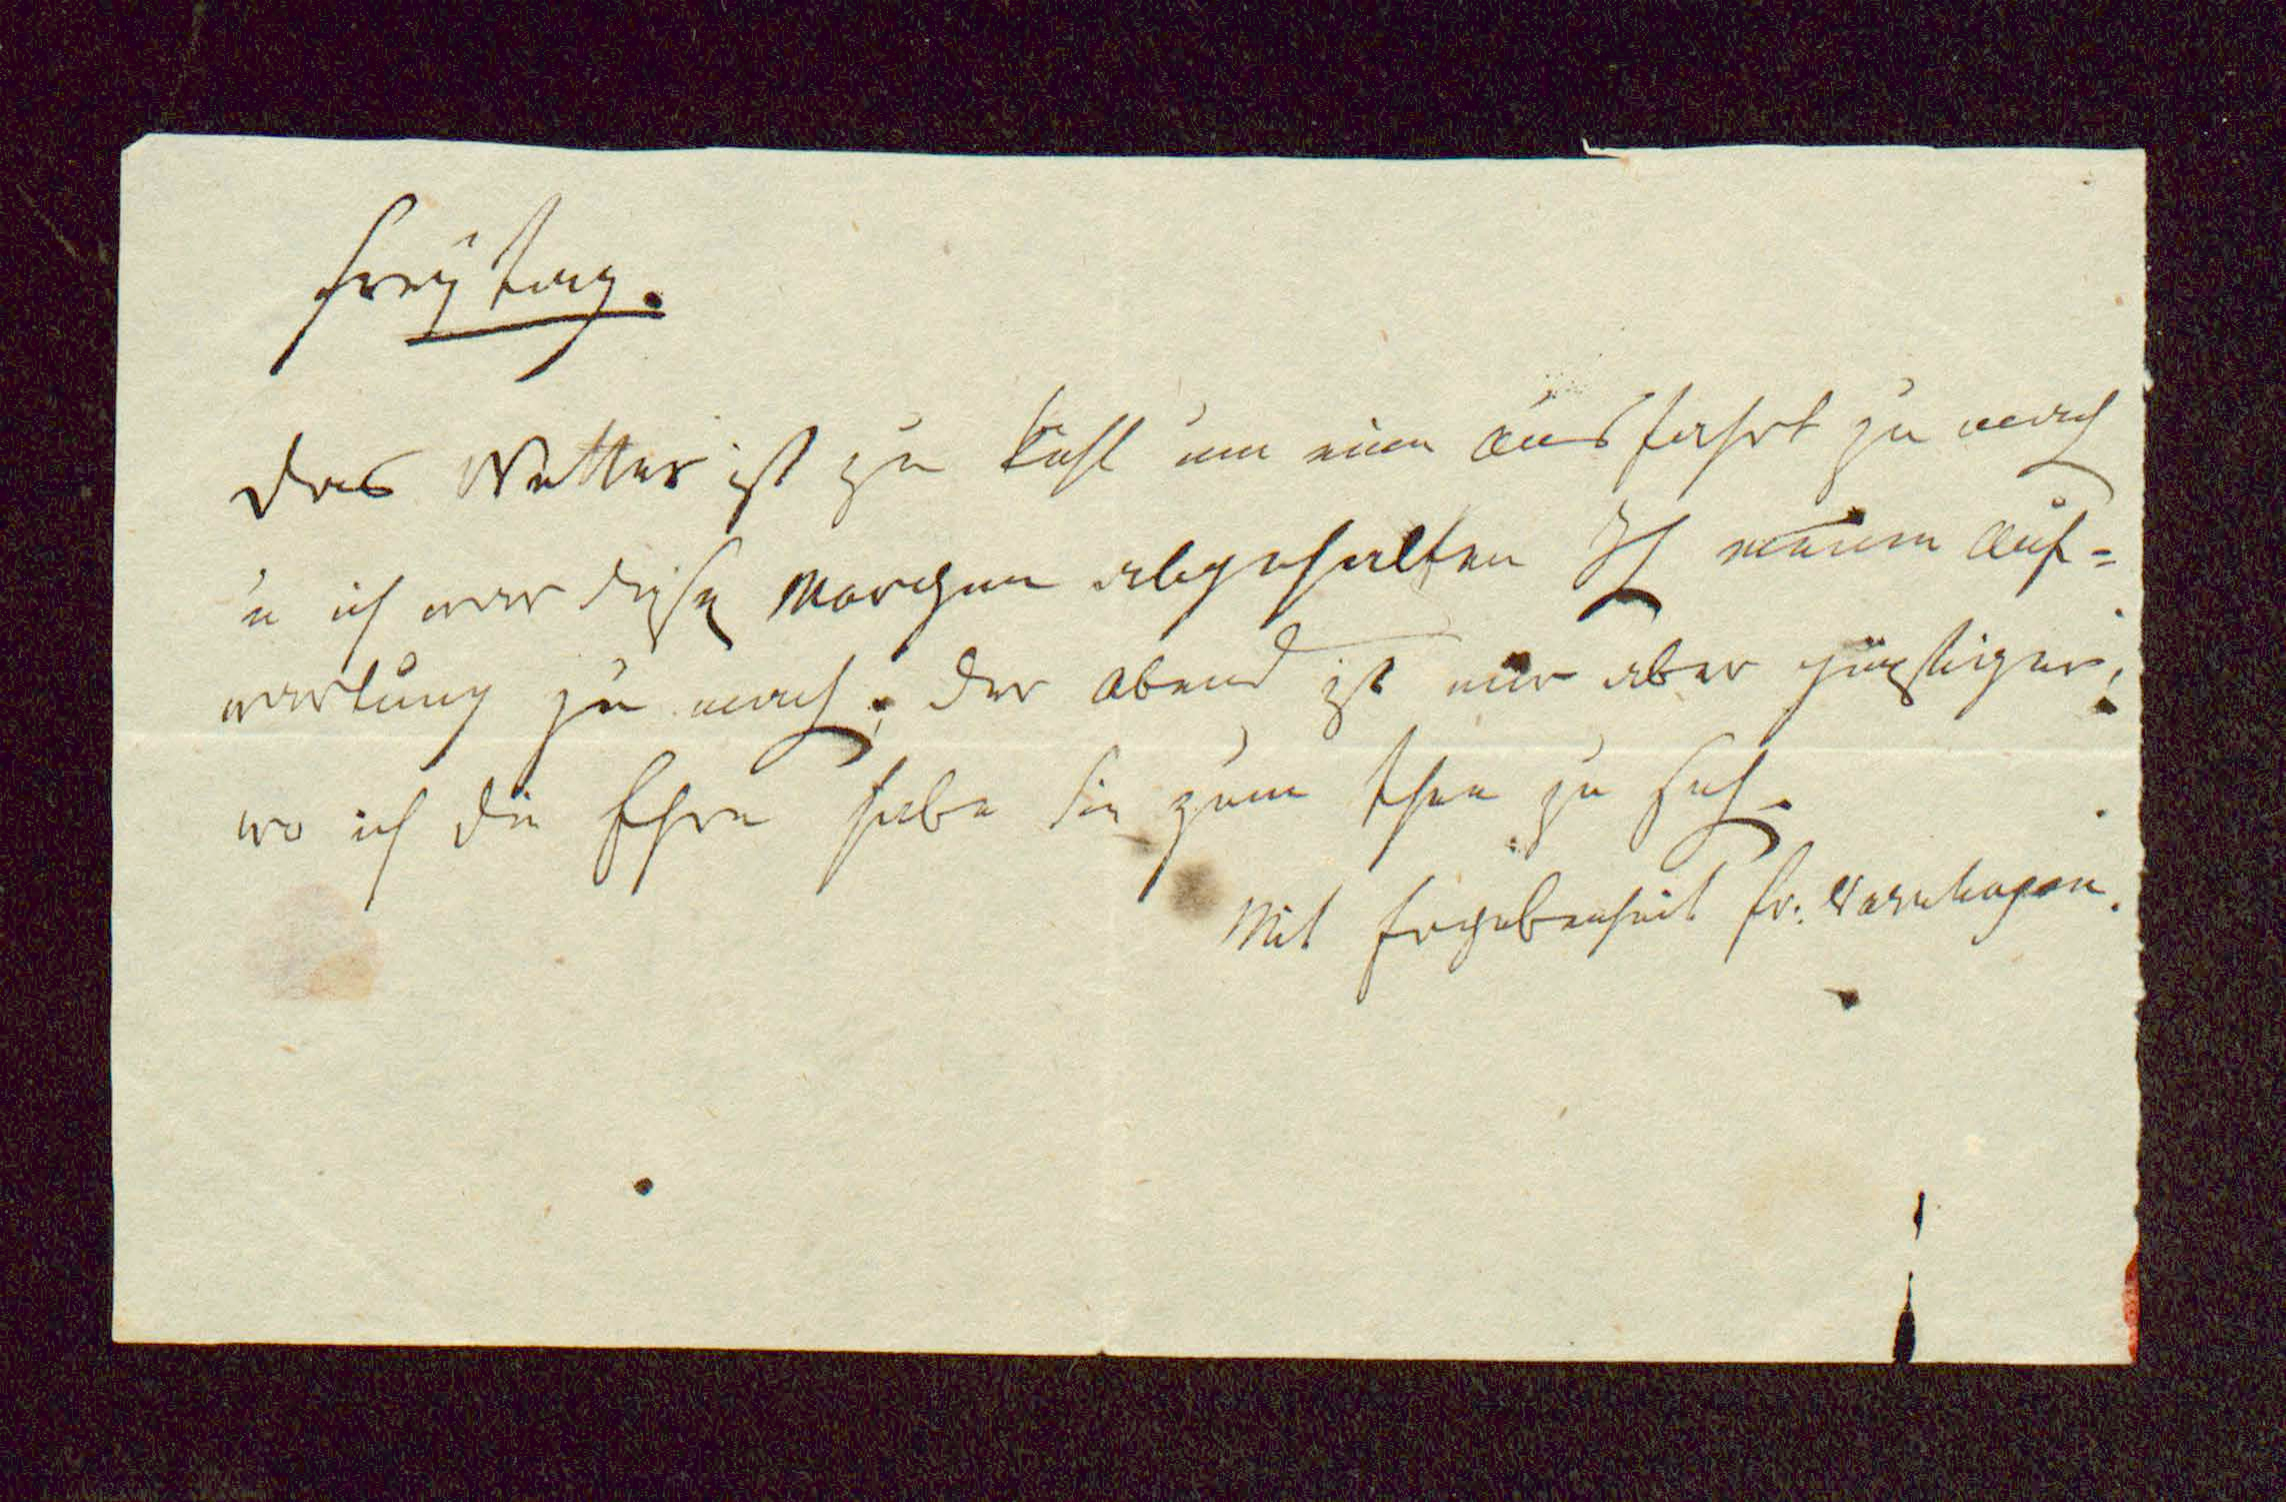 Freÿtag.
Das Wetter ist zu kühl um eine Ausfahrt zu mach
u ich war diese Morgen abgehalten Ih meine Auf=
wartung zu mach; der Abend ist mir aber günstiger;
wo ich die Ehre habe Sie zum Thee zu seh.
Mit Ergebenheit Fr. Varnhagen.